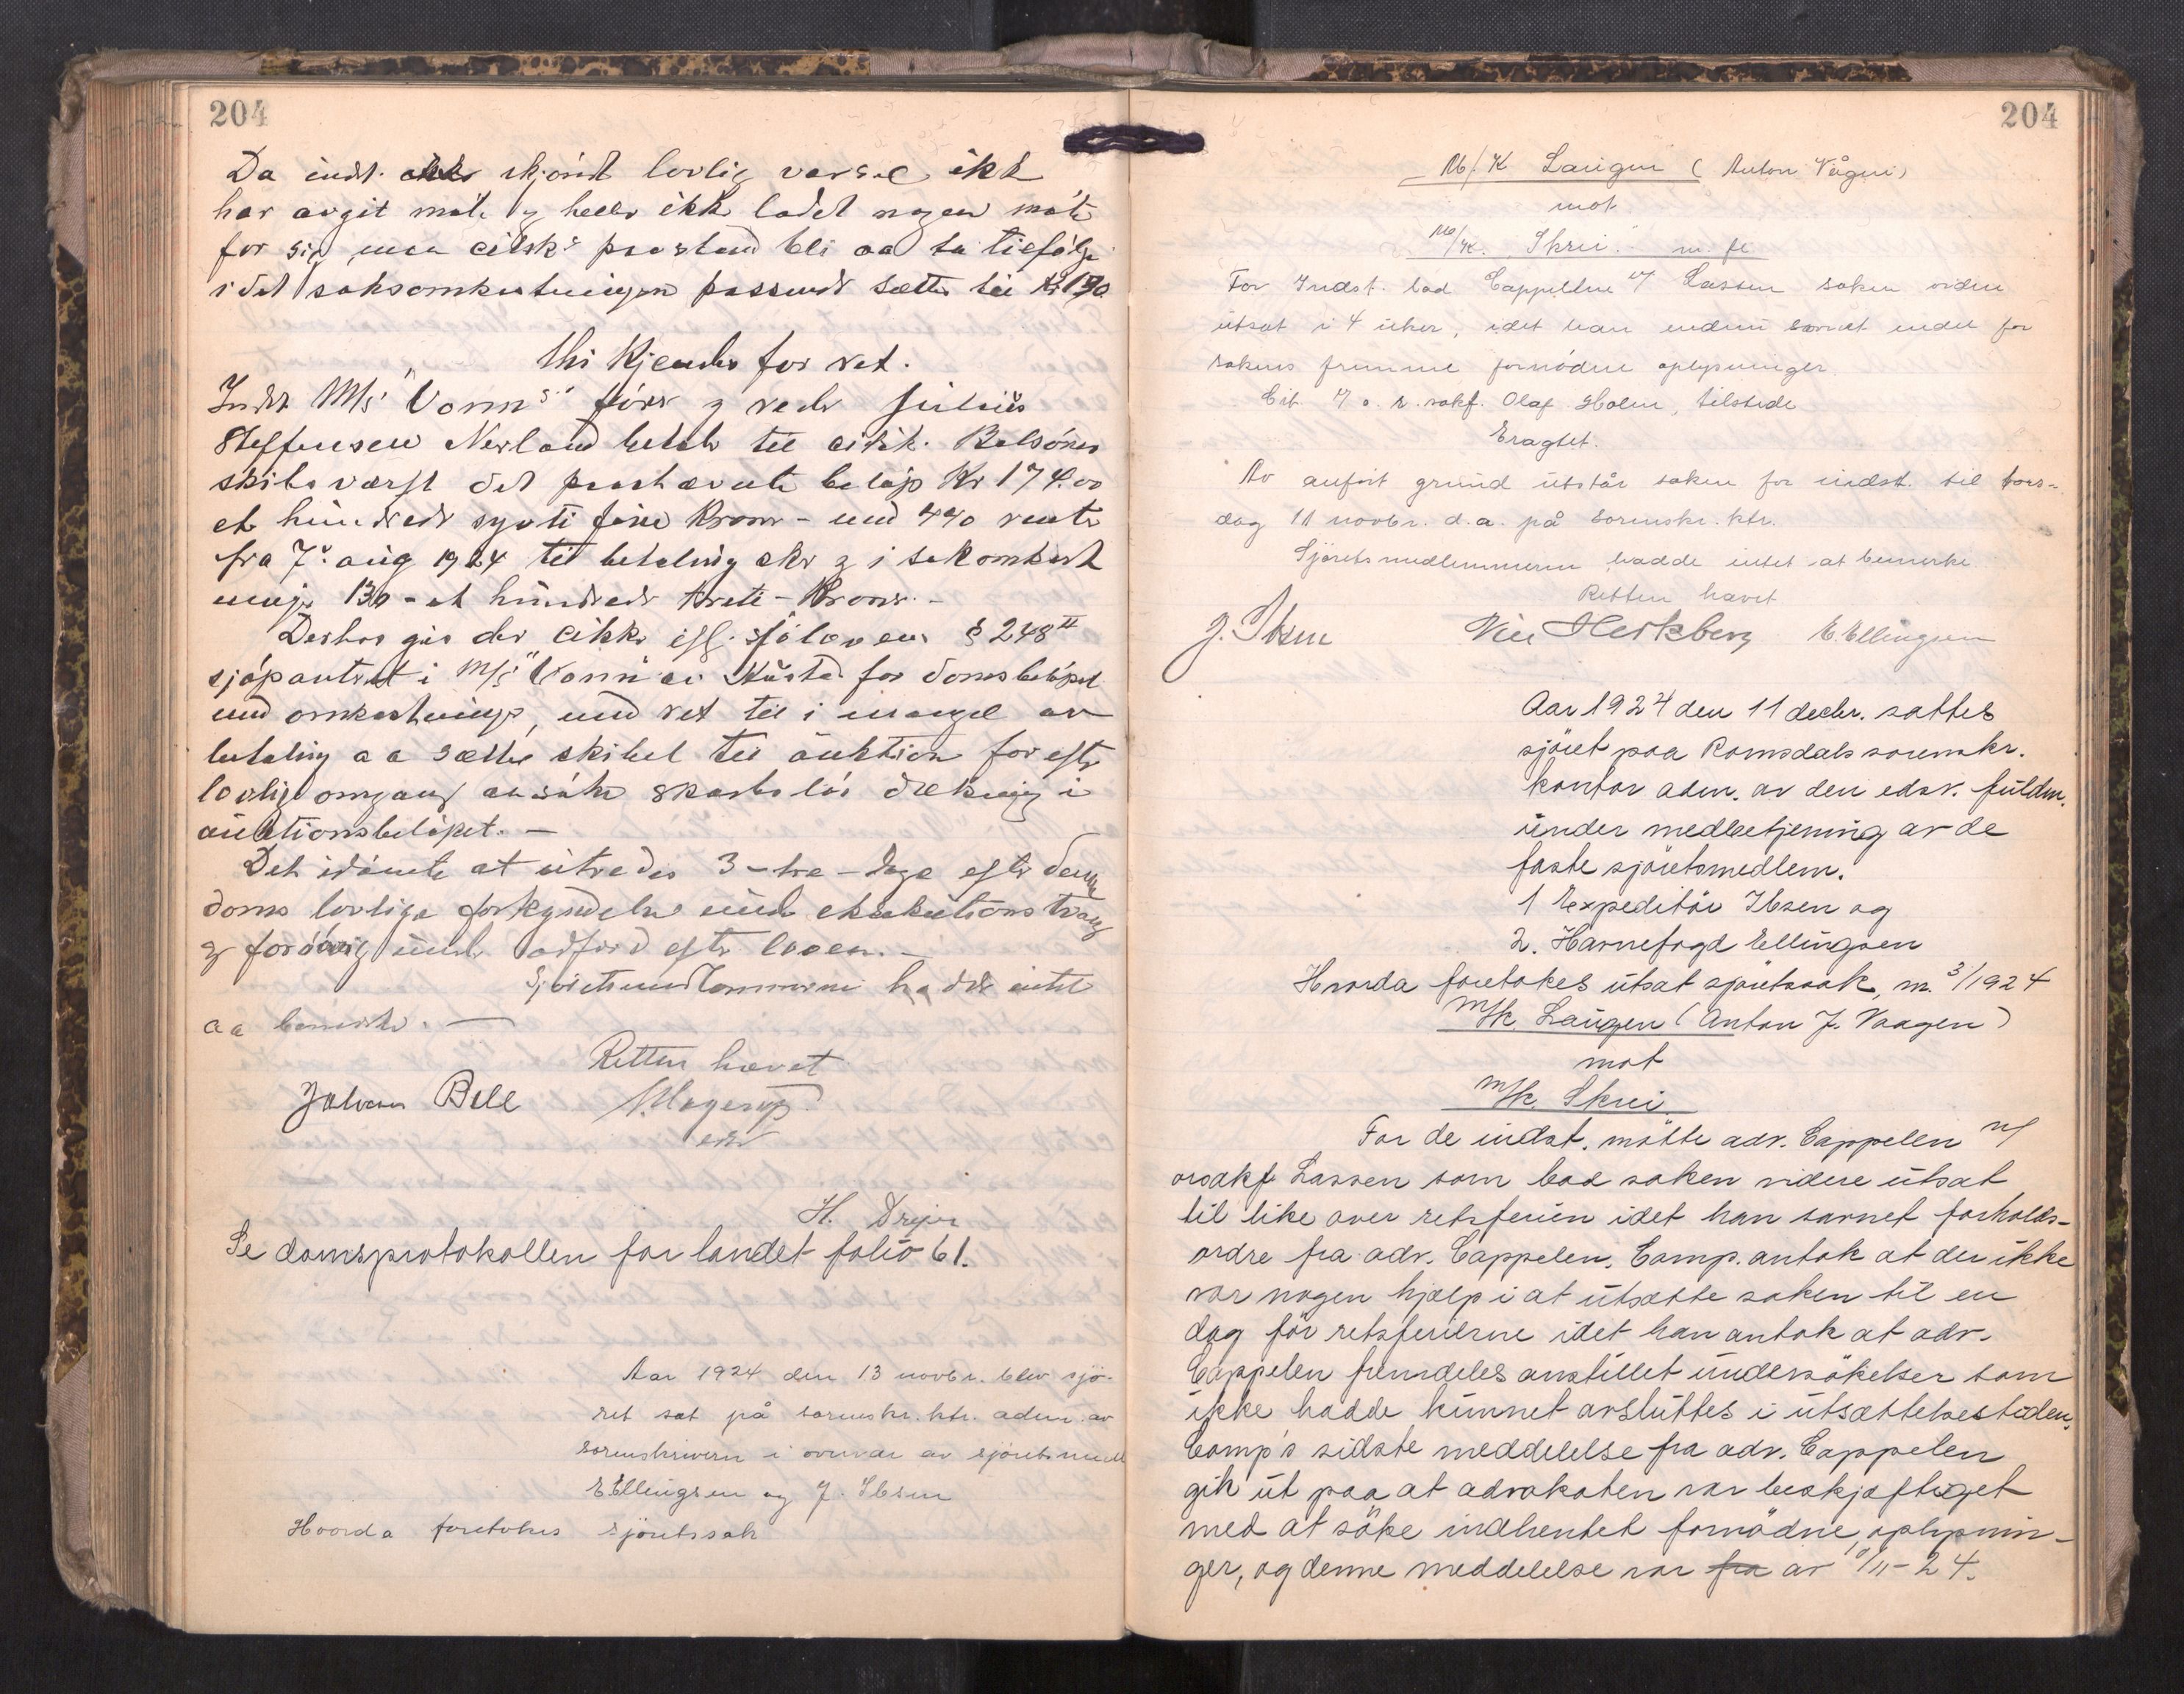 204
Da indst. skjönt lovlig varsel ikke
har avgit möte og heller ikke ladet nogen möte
for sig, maa citsk's paastand bli aa ta tilfölge
idet saksomkostningen passende sættes til kr 130
thi kjendes for ret.
Indst M/S "Vonn"s förer og reder Julius
Steffensen Nerland betale til citsk. Bolsönes
skibsværft det paastævnte belöp Kr 174.00
et hundrede sytti fire Kroner - med 4% rente
fra 7. aug 1924 til betaling sker og i sakomkost
ninger 130 - et hundrede tretti - Kroner. -
Derhos gis der citsk ifl. sjöloven § 248 II
sjöpantret i M/S "Vonn" av Kristd for domsbelöpet
med omkostninger, med ret til i mangel av
betaling aa sætte skibet til auktion for efter
lovlig omgang at söke skadeslös dækning i
auktionsbelöpet. -
Det idömte at utredes 3 - tre - dage efter denne
doms lovlige forkyndelse under eksekutions tvang
og forövrig under adfærd efter loven. -
Sjöretsmedlemmerne hadde intet
aa bemerke. -
Retten hævet
Johan Bell
edsv
H. Dreyer
Se domsprotokollen for landet folio 61.
Aar 1924 den 13 novbr. blev sjö-
ret sat på sorenskr. ktr. adm. av
sorenskriveren i overvær av sjöretsmedl
E Ellingsen og J. Ibsen
Hvorda foretokes sjöretssak
204
M/K Laugen (Anton Vågen)
mot
M/K. "Skrei" m. fl
For Indst. bad Cappelen v/ Lassen saken videre
utsat i 4 uker, idet han endnu savnet endel for
sakens fremme fornödne oplysninger.
Cit. v/ o. r. sakf. Olaf Holm, tilstede
Eragtet.
Av anfört grund utstår saken for indst. til tors-
dag 11 novbr. d.a. på sorenskr. ktr.
Sjöretsmedlemmerne hadde intet at bemerke
Retten hævet
J. Ibsen Hertzberg E. Ellingsen
Aar 1924 den 11 decbr. sattes
sjöret paa Romsdals sorenskr.
kontor adm. av den edsv. fuldm.
under medbetjening av de
faste sjöretsmedlem.
1 Expeditör Ibsen og
2. Havnefogd Ellingsen
Hvorda foretokes utsat sjöretssak, nr. 3/1924
m/k. Laugen (Anton J. Vaagen)
mot
m/k. Skrei
For de indst. mötte adv. Cappelen v/
orsakf. Lassen som bad saken videre utsat
til like over retsferien idet han savnet forholds-
ordre fra adv. Cappelen. Comp. antok at der ikke
var nogen hjælp i at utsætte saken til en
dag för retsferierne idet han antok at adv.
Cappelen fremdeles anstillet undersökelser som
ikke hadde kunnet avsluttes i utsættelsestiden.
Comp's sidste meddelelse fra adv. Cappelen
gik ut paa at advokaten var beskjæftiget
med at söke indhentet fornödne oplysnin-
ger, og denne meddelelse var fra av /11-24.